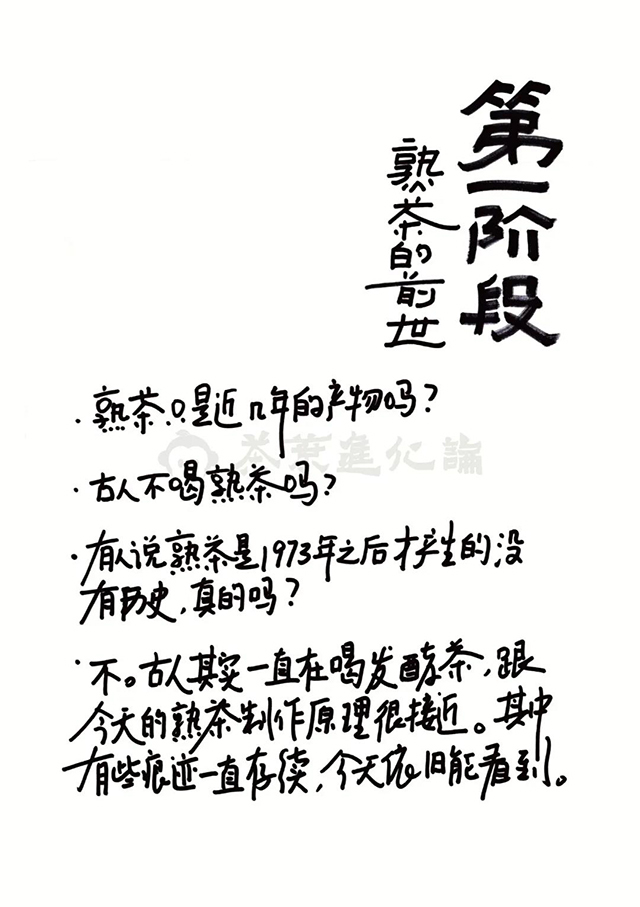 第一阶段
熟茶的前世
· 熟茶只是近几年的产物吗？
茶葉進化論
· 古人不喝熟茶吗？
· 有人说熟茶是1973年之后才产生的没
有历史，真的吗？
· 不。古人其实一直在喝发酵茶，跟
今天的熟茶制作原理很接近。其中
有些痕迹一直存续，今天依旧能看到。